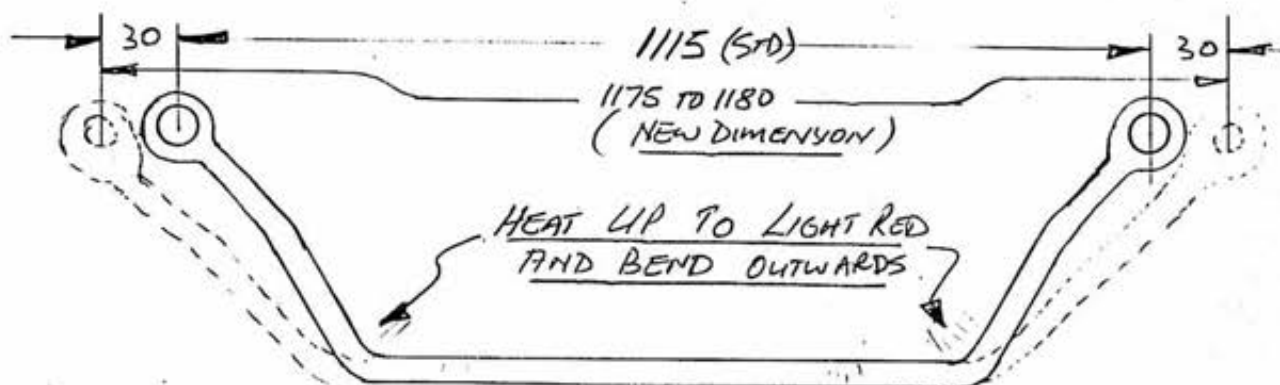 30 1115 (STD) 30
1175 TO 1180
( NEW DIMENSION )
HEAT UP TO LIGHT RED
AND BEND OUTWARDS